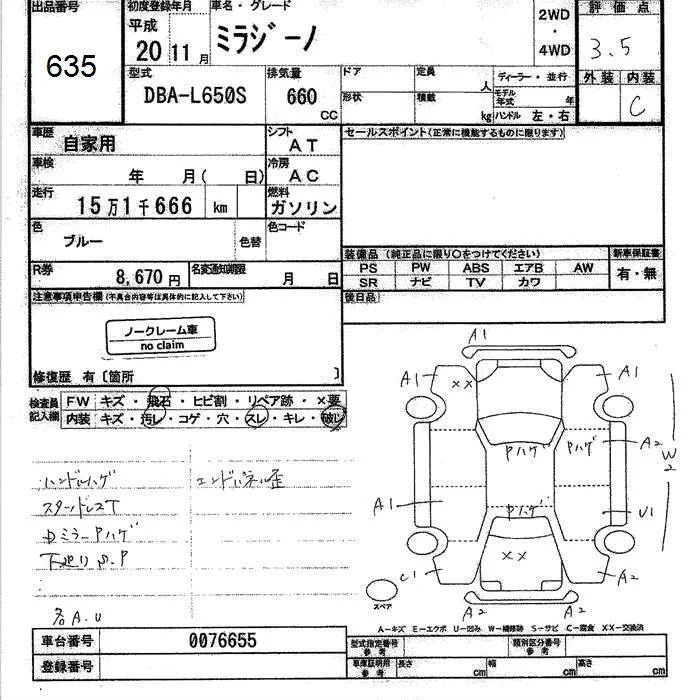 出品番号 初度登録年月 車名・グレード 評価点
635 平成 20 11月 ミラジーノ 2WD ・ 4WD 3.5
外装 内装
C
型式 排気量 ドア 定員 人 ディーラー・並行
DBA-L650S 660 CC 形状 積載 kg モデル年式 年
ハンドル 左・右
車歴 自家用 シフト AT セールスポイント(正常に機能するものに限ります)
車検 年 月( 日) 冷房 AC
走行 15万1千666 km 燃料 ガソリン
色 ブルー 色替 色コード
装備品(純正品に限り○をつけてください) 新車保証書
PS PW ABS エアB AW 有・無
SR ナビ TV カワ
R券 8,670円 名変通知期限 月 日
後日品
注意事項申告欄(不具合内容等は具体的に記入して下さい)
ノークレーム車
no claim
修復歴 有〔箇所 〕
検査員記入欄 FW キズ・飛石・ヒビ割・リペア跡・×要
内装 キズ・汚レ・コゲ・穴・スレ・キレ・破レ
ハンドルハゲ エンドパネル歪
スタッドレスT
DミラーPハゲ
各A.U
A1
A1 XX A1
Pハゲ Pハゲ A2 W2
A1 Pハゲ U1
XX
C1 A2
スペア A2 A2
A-キズ E-エクボ U-凹み W-補修跡 S-サビ C-腐食 XX-交換済
車台番号 0076655 型式指定番号 参考 類別区分番号 参考
登録番号 車庫証明用 参考 長さ cm 幅 cm 高さ cm